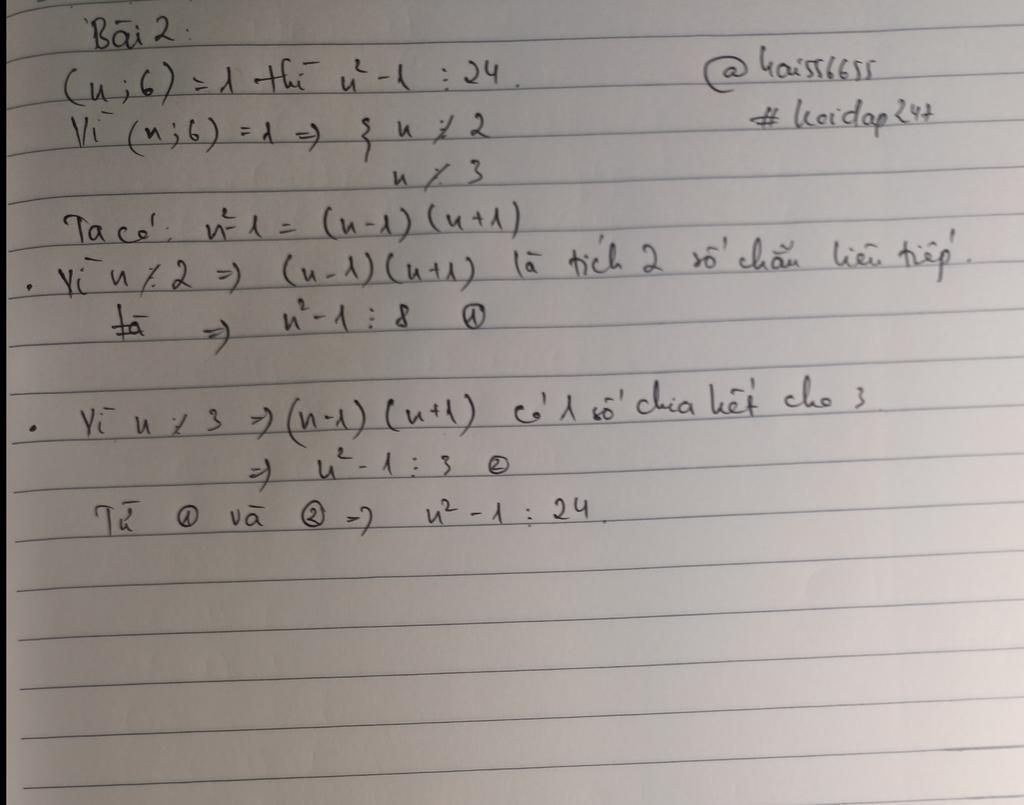 Bài 2:
(n;6) = 1 thì n² - 1 ⋮ 24.
@hai556655
# hoidap247
Vì (n;6) = 1 => { n ⋮̸ 2
n ⋮̸ 3
Ta có: n² - 1 = (n-1) (n+1)
. Vì n ⋮̸ 2 => (n-1) (n+1) là tích 2 số chẵn liên tiếp.
=> n² - 1 ⋮ 8 ①
. Vì n ⋮̸ 3 => (n-1) (n+1) có 1 số chia hết cho 3
=> n² - 1 ⋮ 3 ②
Từ ① và ② => n² - 1 ⋮ 24.